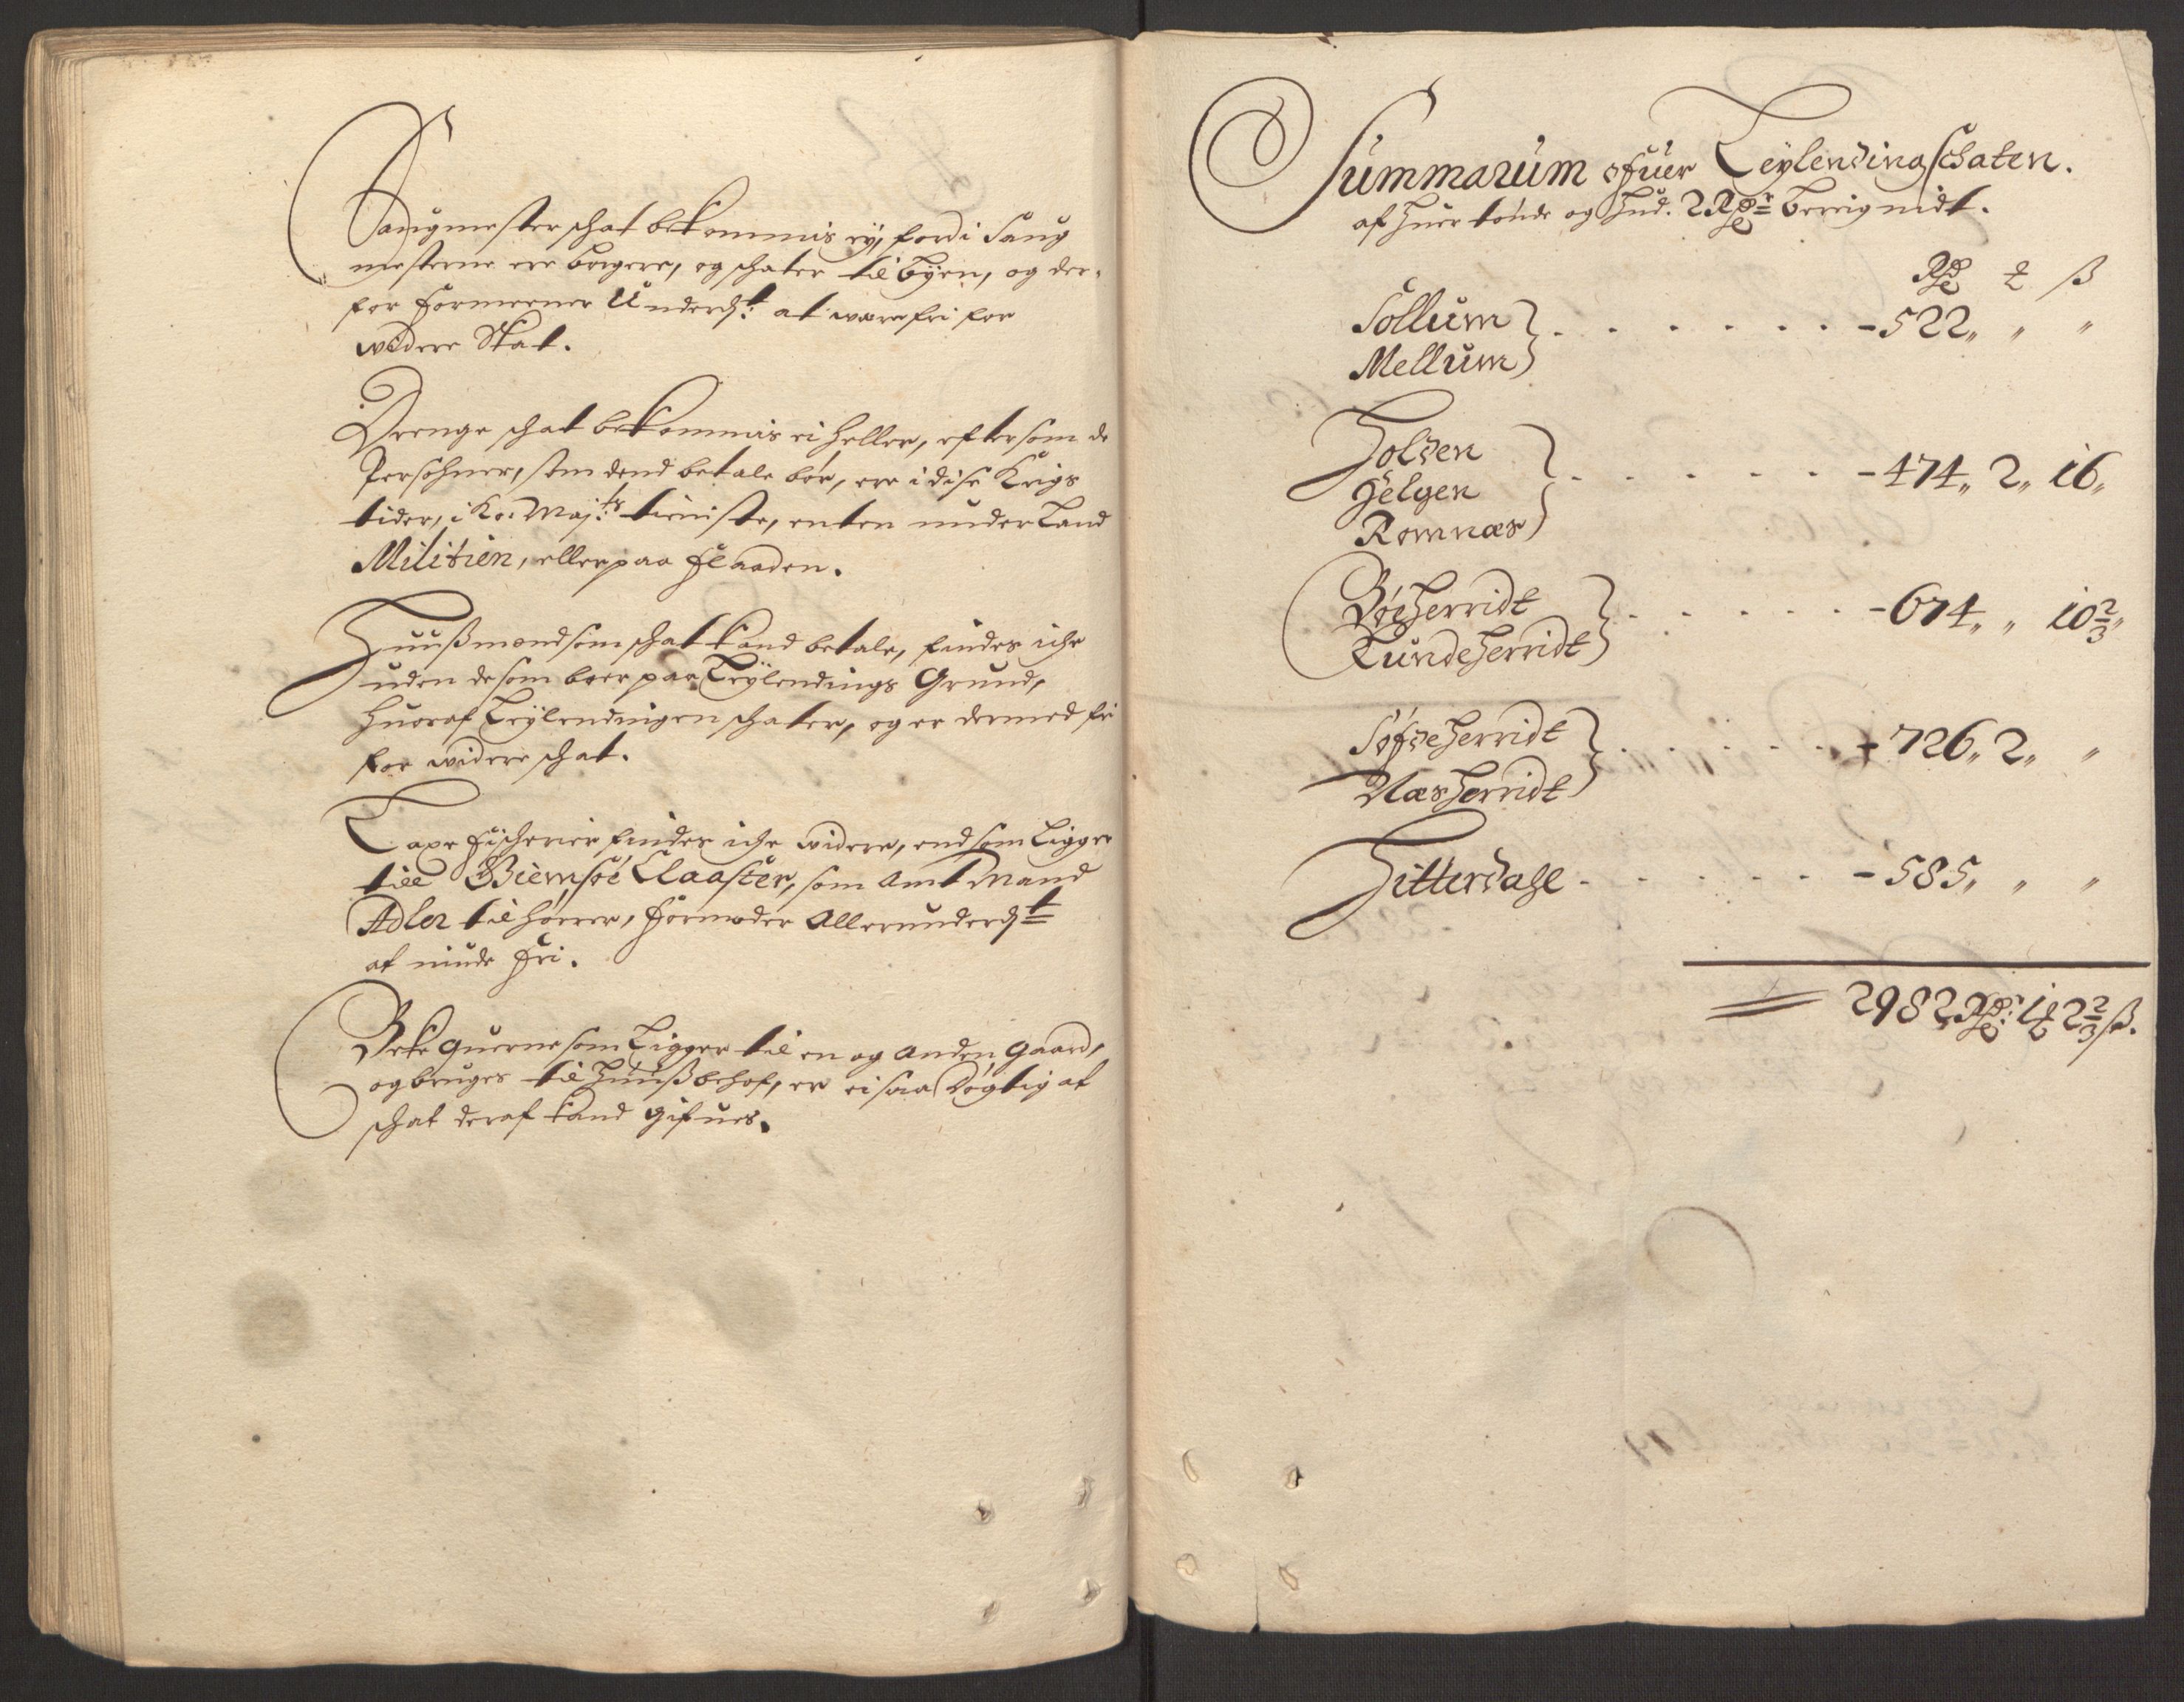 Saugmester schat bekommis eÿ, fordi Saug
mesterne ere borgere, og schater til bÿen, og der-
for formeener Underd:t at were fri for
widere Skat.
Drenge schat bekommis ei heller, eftersom de
Persohner, som dend betale bør, ere i dise Krigs
tider, i Ko: Maj:ts tieniste, enten under Land
Militien, eller paa Flaaden.
Huußmend som schat kand betale, findes iche
uden de som boer paa Leÿlendings Grund,
huoraf Leÿlendingen schater, og er dermed fri
for widere schat.
Laxe fischerier findes iche widere, end som Ligger
till Giemsøe Claaster, som Amtmand
Adler tilhører, formoder Allerunderd:t
at niude fri.
Beke querne som Ligger til en og anden gaard,
og bruges til huußbehof, er ei saa døgtig at
schat deraf kand gifues.
Summarum ofuer Leÿlending schaten.
af huer tønde og hud. 2 Rdr bereignidt.
Rdr ß
Sollum
Mellum - 522 „ „ „
Holden
Helgen
Romnæs - 474 „ 2 „ 16 „
Bøeherridt
Lundeherridt - 674 „ „ 10 2/3 „
Søfdeherridt
Næsherridt - 726 „ 2 „ „
Hitterdahl - 585 „ „ „
2982 Rdr: 1 2 2/3 ß.